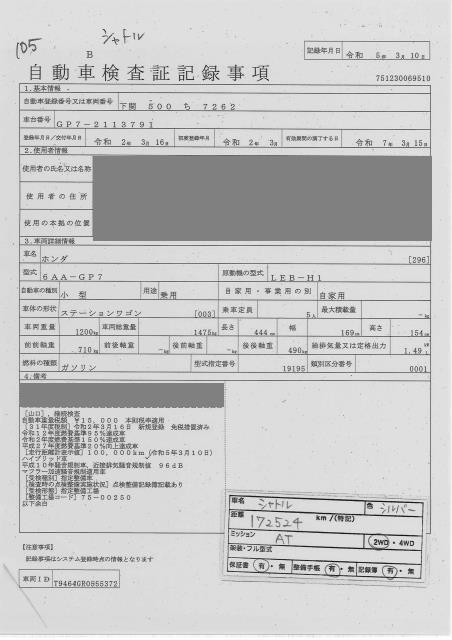 105
シャトル
B
記録年月日 令和 5年 3月10日
自動車検査証記録事項
751230069510
1.基本情報
自動車登録番号又は車両番号 下関 500 ち 7262
車台番号 GP7-2113791
登録年月日/交付年月日 令和 2年 3月16日 初度登録年月 令和 2年 3月 有効期間の満了する日 令和 7年 3月15日
2.使用者情報
使用者の氏名又は名称
使用者の住所
使用の本拠の位置
3.車両詳細情報
車名 ホンダ [296]
型式 6AA-GP7 原動機の型式 LEB-H1
自動車の種別 小型 用途 乗用 自家用・事業用の別 自家用
車体の形状 ステーションワゴン [003] 乗車定員 5人 最大積載量 -kg
車両重量 1200kg 車両総重量 1475kg 長さ 444cm 幅 169cm 高さ 154cm
前前軸重 710kg 前後軸重 -kg 後前軸重 -kg 後後軸重 490kg 総排気量又は定格出力 1.49L
燃料の種類 ガソリン 型式指定番号 19195 類別区分番号 0001
4.備考
[山口],継続検査
自動車重量税額 ¥15,000 本則税率適用
[31年度税制]令和2年3月16日 新規登録 免税措置済み
令和12年度燃費基準95%達成車
令和2年度燃費基準150%達成車
平成27年度燃費基準20%向上達成車
[走行距離計表示値]100,000km(令和5年3月10日)
ハイブリッド車
平成10年騒音規制車、近接排気騒音規制値 96dB
マフラー加速騒音規制適用車
[受検種別]指定整備車
[検査時の点検整備実施状況]点検整備記録簿記載あり
[受検形態]指定整備工場
[整備工場コード]75-00250
以下余白
車名 シャトル 色 シルバー
距離 172524 km/(特記)
ミッション AT 2WD・4WD
架装・フル型式
保証書 有・無 整備手帳 有・無 記録簿 有・無
【注意事項】
記録事項はシステム登録時点の情報となります
車両ID T9464GR0955372